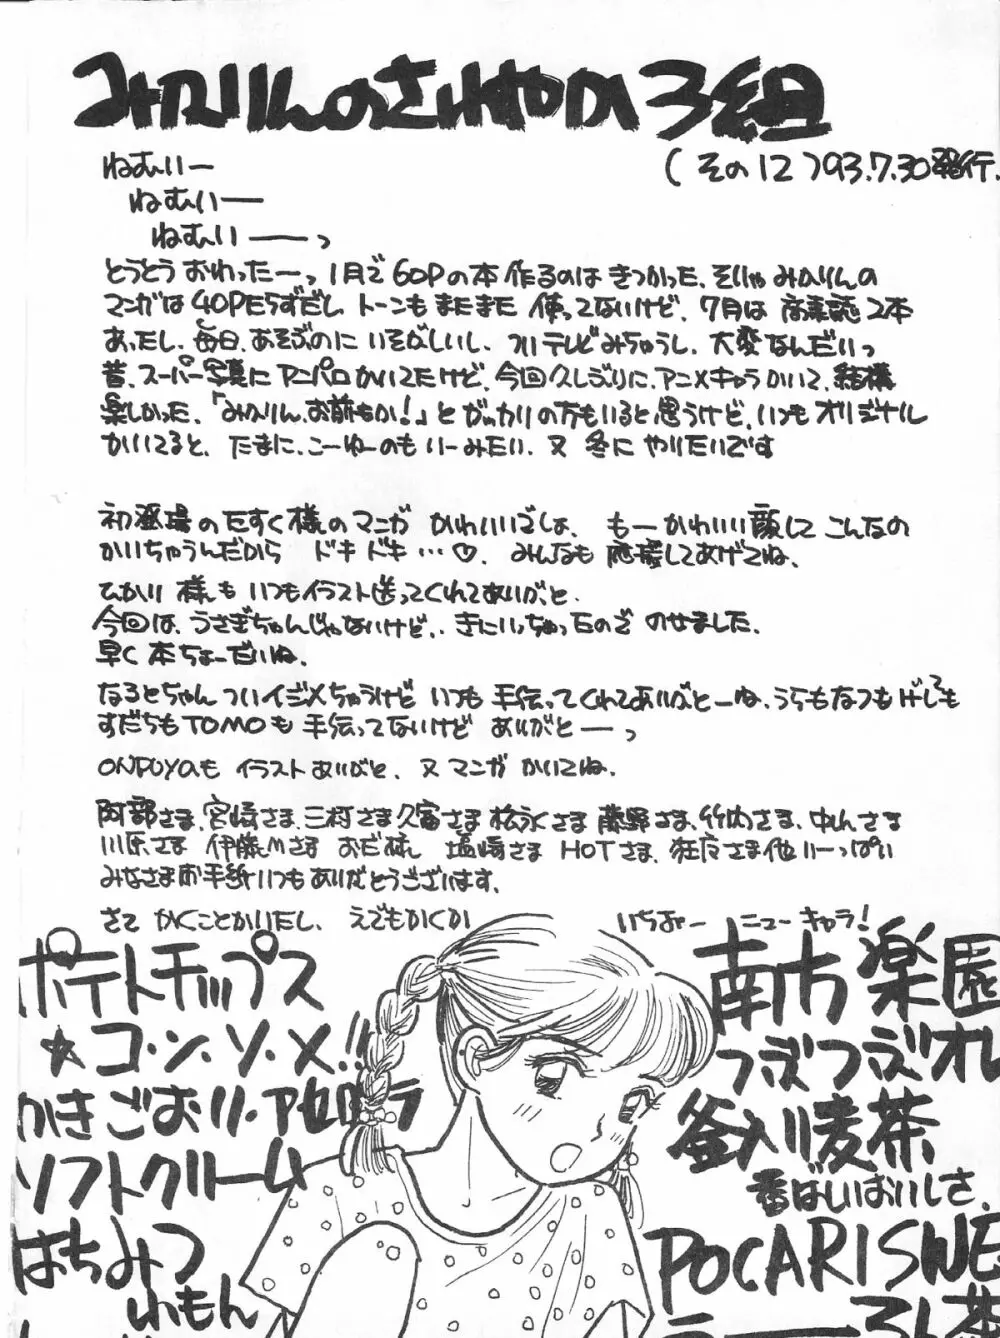 みかりんのさわやか3組
(その12)93.7.30発行.
ねむいー
ねむいー
ねむいーーっ
とうとうおわったーっ 1月で60Pの本作るのはきつかった、そりゃみかりんの
マンガは40Pたらずだし トーンもまたまた使ってないけど、7月は 2本
あったし、毎日、あそぶのに いそがしいし、ついテレビみちゃうし、大変なんだいっ
昔、スーパー写真に アニパロかいてたけど、今回久しぶりに、アニメキャラかいて、結構
楽しかった、「みかりん、お前もか!」とがっかりの方もいると思うけど、いつもオリジナル
かいてると、たまに、こーゆーのもいーみたい、又 冬に やりたいです
初登場のたすく様のマンガ かわいいでしょ、 もーかわいい顔して こんなの
かいちゃうんだから ドキドキ…♡、 みんなも 応援してあげてね、
ひかり様も いつもイラスト送ってくれてありがと、
今回は、うさぎちゃんじゃないけど、、きにいっちゃったのでのせました、
早く 本ちょーだいね、
なるとちゃん ついイジメちゃうけど いつも 手伝ってくれてありがとーね、うらもなつもげしも
すだちもTOMOも 手伝ってないけど ありがとーーっ
ONPUYAも イラストありがと、又 マンガ かいてね、
阿部さま、宮崎さま、三村さま久富さま 松永さま 藤野さま、竹内さま、中山さま
川原さま 伊藤Mさま おだ様 塩崎さま HOTさま、狂なさま他 いーっぱい
みなさまお手紙いつもありがとうございます、
さて かくことかいたし、 えでもかくか
いちおー ニューキャラ!
ポテトチップス
☆コ・ン・ソ・メ!!
かきごおり・アセロラ
ソフトクリーム
はちみつ
れもん
南方楽園
つぶつぶオレ
釜入り麦茶
番ばしいおいしさ、
POCARISWE